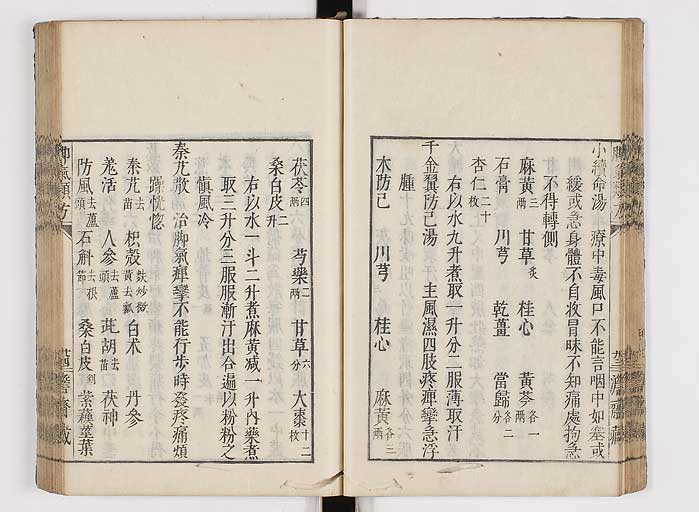 小續命湯　療中毒風口不能言咽中如塞或
緩或急身體不自收冒昧不知痛處拘急
不得轉側
麻黃三兩　甘草炙　桂心　黃芩各一兩
石膏　川芎　乾薑　當歸各二分
杏仁二十枚
右以水九升煮取一升分二服薄取汗
千金翼防己湯　主風濕四肢疼痺攣急浮
腫
木防己　川芎　桂心　麻黃各三兩
茯苓四兩　芍藥二兩　甘草六分　大棗十二枚
桑白皮二升
右以水一斗二升煮麻黃减一升內藥煮
取三升分三服服漸汗出令遍以粉粉之
愼風冷
秦艽散　治脚氣痺攣不能行步時疼痛煩
躁恍惚
秦艽去苗　枳殼麩炒微黃去瓤　白术　丹參
羗活　人參去蘆頭　茈胡去苗　茯神
防風去蘆頭　石斛去根節　桑白皮剉　紫蘓莖葉
脚氣類方